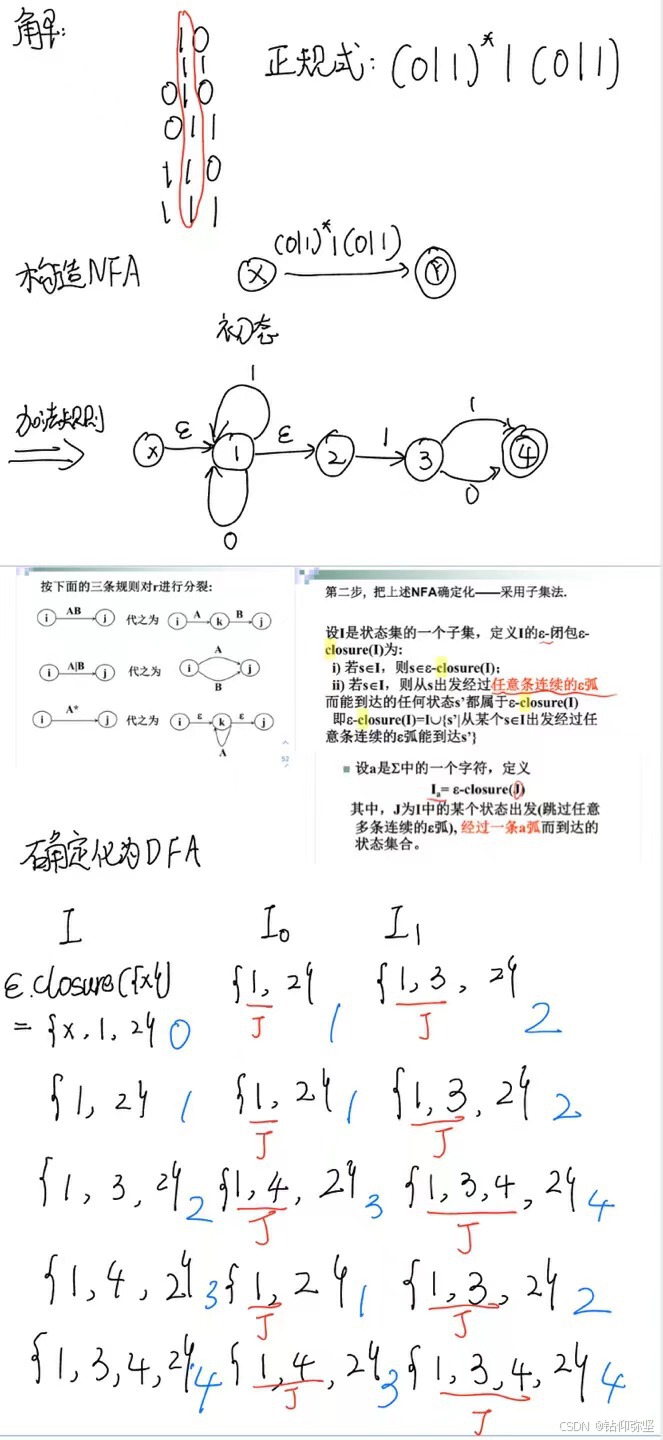 解:
10
11
010
011
110
111
正规式: (0|1)*1(0|1)
构造NFA
X
(0|1)*1(0|1)
Y
初态
加法规则
X
ε
1
1
0
ε
2
1
3
1
0
4
按下面的三条规则对r进行分裂:
i AB j 代之为 i A k B j
i A|B j 代之为 i A B j
i A* j 代之为 i ε k ε j A
52
第二步, 把上述NFA确定化——采用子集法.
设I是状态集的一个子集，定义I的ε-闭包ε-
closure(I)为:
i) 若s∈I，则s∈ε-closure(I);
ii) 若s∈I，则从s出发经过任意条连续的ε弧
而能到达的任何状态s’都属于ε-closure(I)
即ε-closure(I)=I∪{s’|从某个s∈I出发经过任
意条连续的ε弧能到达s’}
设a是Σ中的一个字符，定义
Ia= ε-closure(J)
其中，J为I中的某个状态出发(跳过任意
多条连续的ε弧), 经过一条a弧而到达的
状态集合。
确定化为DFA
I I0 I1
ε.closure({x})
= {x,1,2} 0 {1,2} J 1 {1,3,2} J 2
{1,2} 1 {1,2} J 1 {1,3,2} J 2
{1,3,2} 2 {1,4,2} J 3 {1,3,4,2} J 4
{1,4,2} 3 {1,2} J 1 {1,3,2} J 2
{1,3,4,2} 4 {1,4,2} J 3 {1,3,4,2} J 4
CSDN @钻仰弥坚